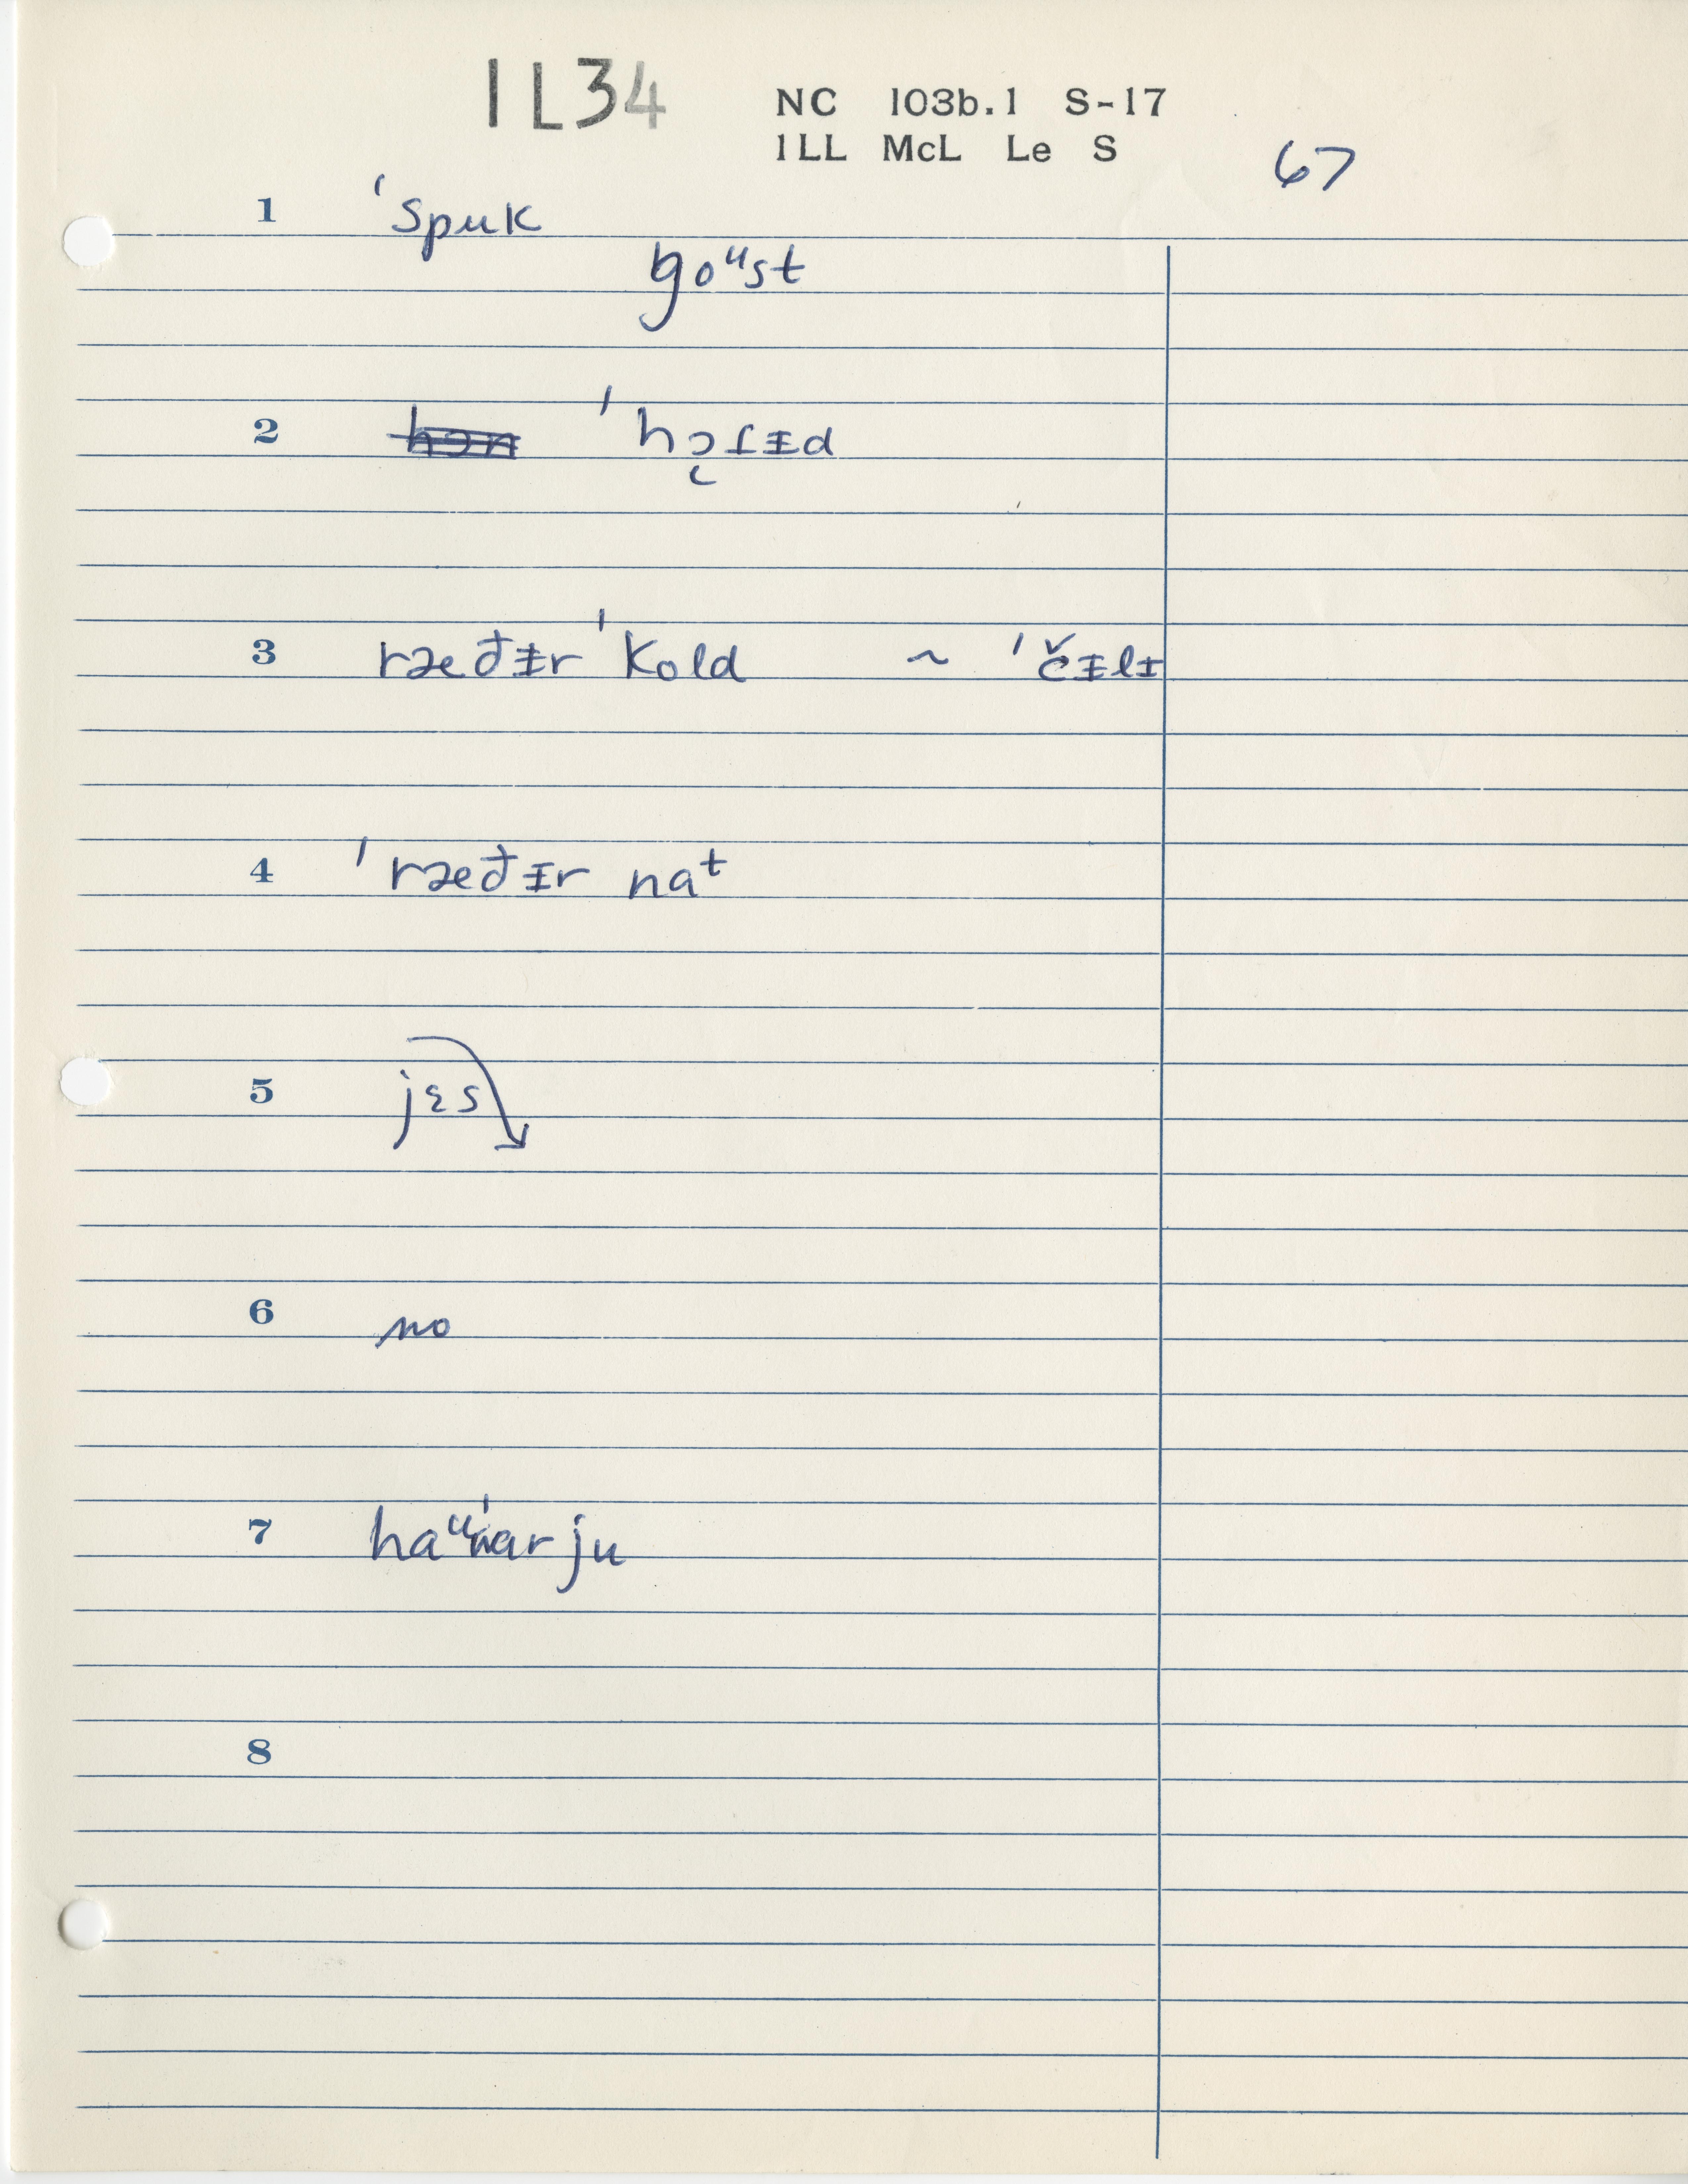 IL34
NC 103b.1 S-17
ILL McL Le S
67
1 ˈspuk
goᵘst
2 ˈhɔ̜ɾᵻd
3 ræðᵻr ˈkold ~ ˈčᵻlᵻ
4 ˈræðᵻr naᵗ
5 jɛs
6 no
7 haᵘˈar ju
8